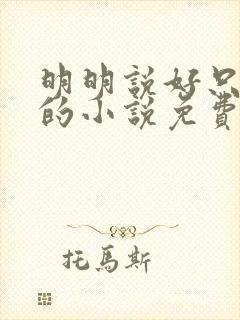 明明說好只
的小說免費
托馬斯